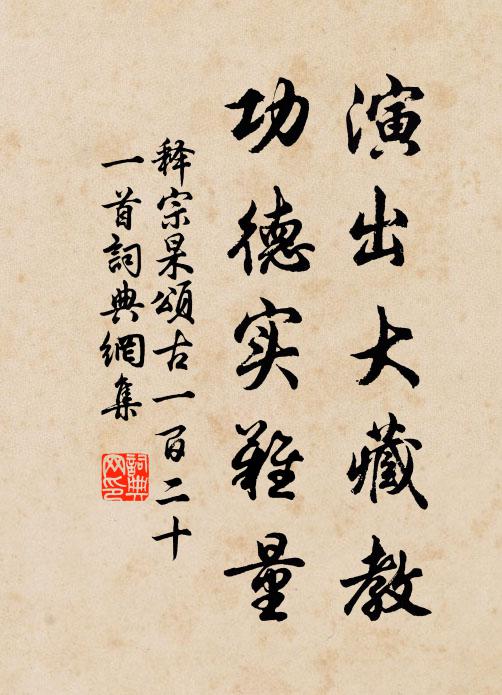 演出大藏教
功德实難量
释宗杲頌古一百二十
一首詞典網集
詞典网印